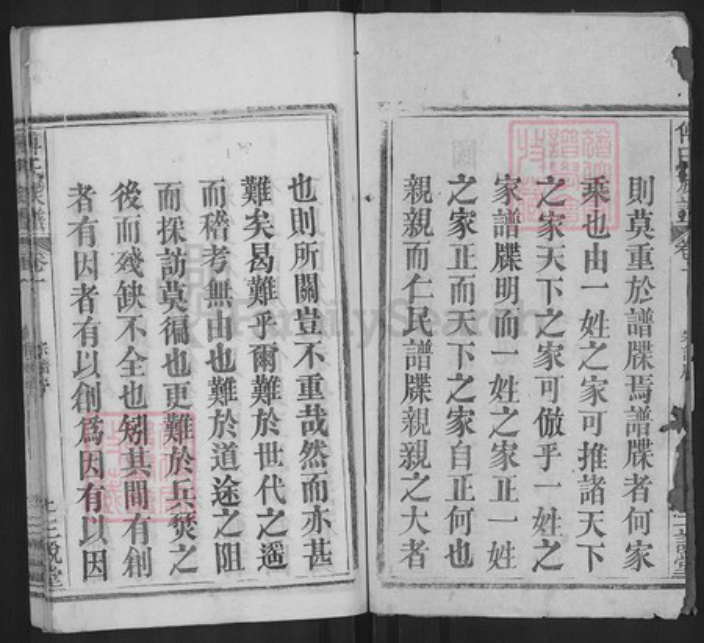 則莫重於譜牒焉譜牒者何家
乘也由一姓之家可推諸天下
之家天下之家可倣乎一姓之
家譜牒明而一姓之家正一姓
之家正而天下之家自正何也
親親而仁民譜牒親親之大者
也則所關豈不重哉然而亦甚
難矣曷難乎爾難於世代之遥
而稽考無由也難於道途之阻
而採訪莫徧也更難於兵燹之
後而殘缺不全也矧其間有創
者有因者有以創爲因有以因
卷一
FamilySearch